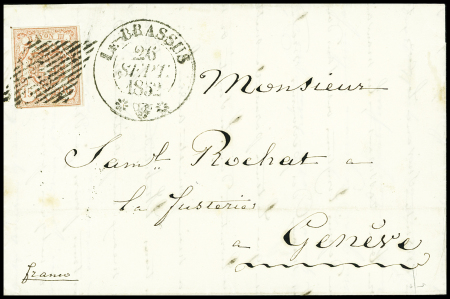 LE BRASSUS
26
SEPT.
1852
Monsieur
Saml. Rochat a
la Fusterie
a Genève
franco